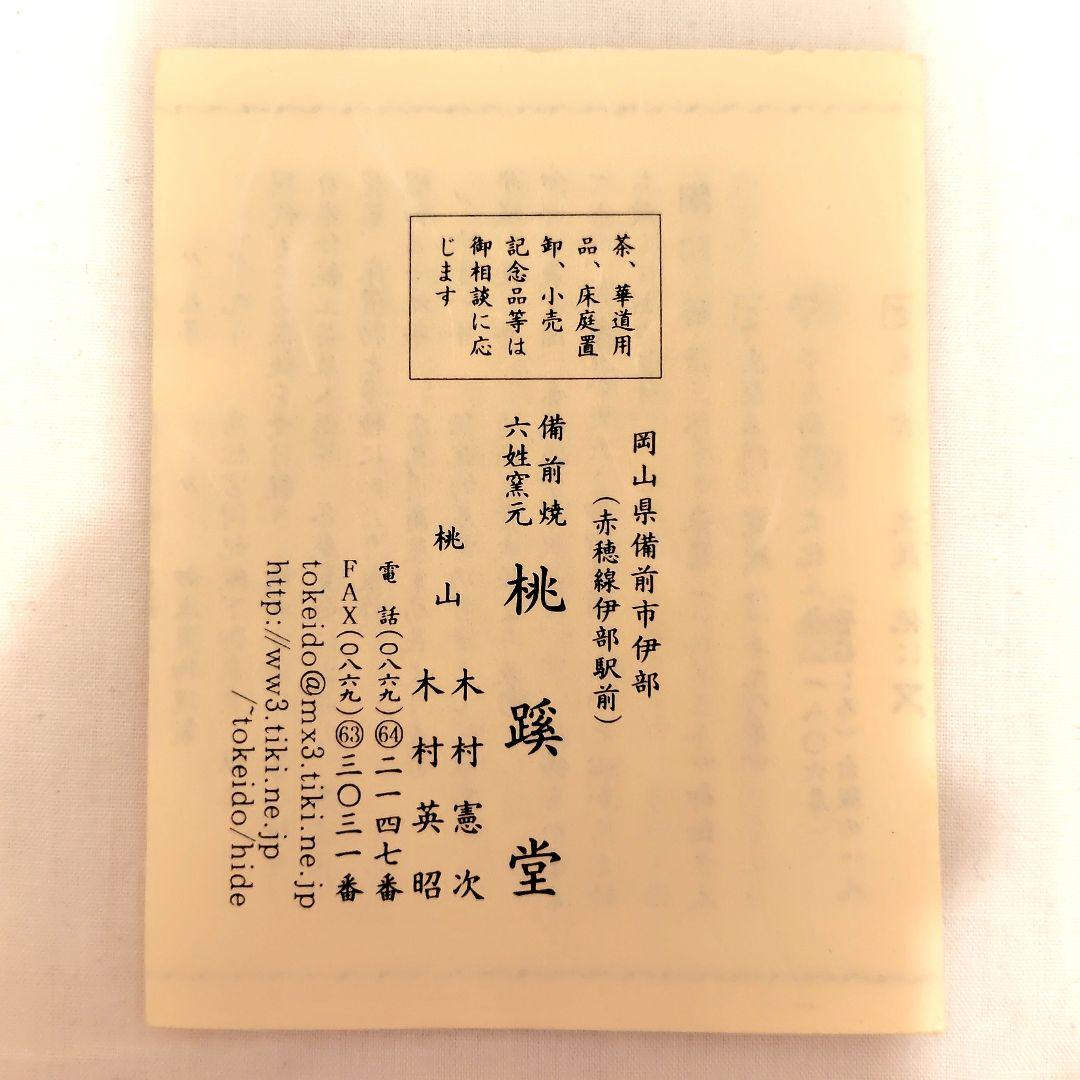 茶、華道用
品、床庭置
卸、小売
記念品等は
御相談に応
じます
岡山県備前市伊部
(赤穂線伊部駅前)
備前焼
六姓窯元
桃蹊堂
桃山
木村憲次
木村英昭
電話(〇八六九)64二一四七番
FAX(〇八六九)63三〇三一番
tokeido@mx3.tiki.ne.jp
http://ww3.tiki.ne.jp
/~tokeido/hide